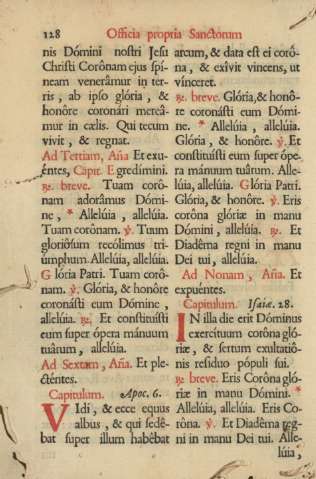 128 Officia propria Sanctorum
nis Dómini nostri Jesu
Christi Corônam ejus spí-
neam venerâmur in ter-
ris, ab ipso glória, &
honôre coronári mereâ-
mur in cælis. Qui tecum
vivit, & regnat.
Ad Tertiam, Aña Et exu-
éntes, Capit. Egredimini.
℟. breve. Tuam corô-
nam adorâmus Dómi-
ne, * Allelúia, allelúia.
Tuam corônam. ℣. Tuum
gloriôsum recólimus tri-
úmphum. Allelúia, allelúia.
Glória Patri. Tuam corô-
nam. ℣. Glória, & honôre
coronásti eum Dómine,
allelúia. ℟. Et constituísti
eum super ópera mánuum
tuârum, allelúia.
Ad Sextam, Aña. Et ple-
cténtes.
Capitulum. Apoc. 6.
VIdi, & ecce equus
albus, & qui sedê-
bat super illum habêbat
arcum, & data est ei corô-
na, & exívit vincens, ut
vínceret.
℟. breve. Glória, & honô-
re coronásti eum Dómi-
ne. * Allelúia, allelúia.
Glória, & honôre. ℣. Et
constituísti eum super ópe-
ra mánuum tuârum. Alle-
lúia, allelúia. Glória Patri.
Glória, & honôre. ℣. Eris
corôna glóriæ in manu
Dómini, allelúia. ℟. Et
Diadêma regni in manu
Dei tui, allelúia.
Ad Nonam, Aña. Et
expuéntes.
Capitulum. Isaiæ. 28.
IN illa die erit Dóminus
exercítuum corôna gló-
riæ, & sertum exultatiô-
nis resíduo pópuli sui.
℟. breve. Eris Corôna gló-
riæ in manu Dómini. *
Allelúia, allelúia. Eris Co-
rôna. ℣. Et Diadêma reg-
ni in manu Dei tui. Alle-
lúia,